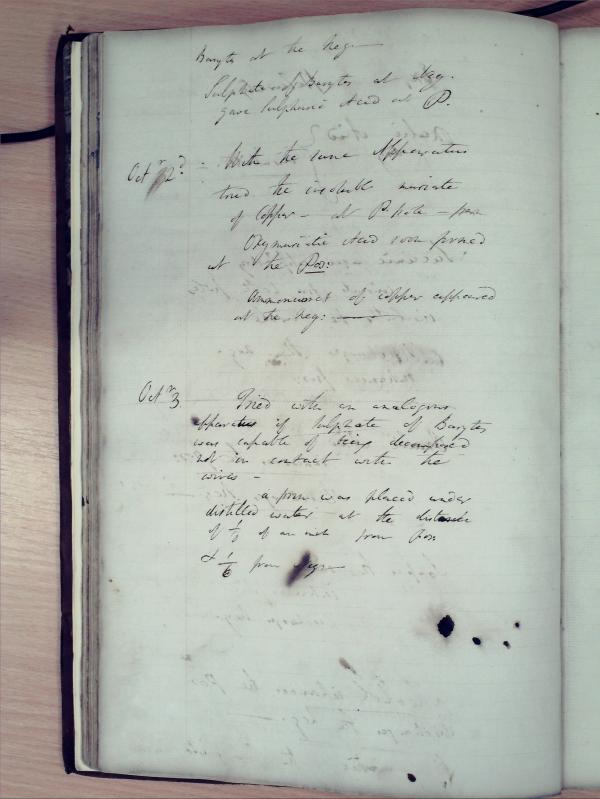 Barytes at the Neg.
Sulphate of Barytes at Neg.
gave Sulphuric Acid at P.
Octr 2d: With the same Apparatus
tried the muriate
of Copper - at P. pole -
Oxymuriatic Acid soon formed
at the Pos:
Ammoniuret of copper appeared
at the neg:
Octr 3. Tried with an analogous
apparatus if Sulphate of Barytes
was capable of being decomposed
not in contact with the
wires -
a was placed under
distilled water at the distance
of of an inch from Pos
& 1/6 from Neg